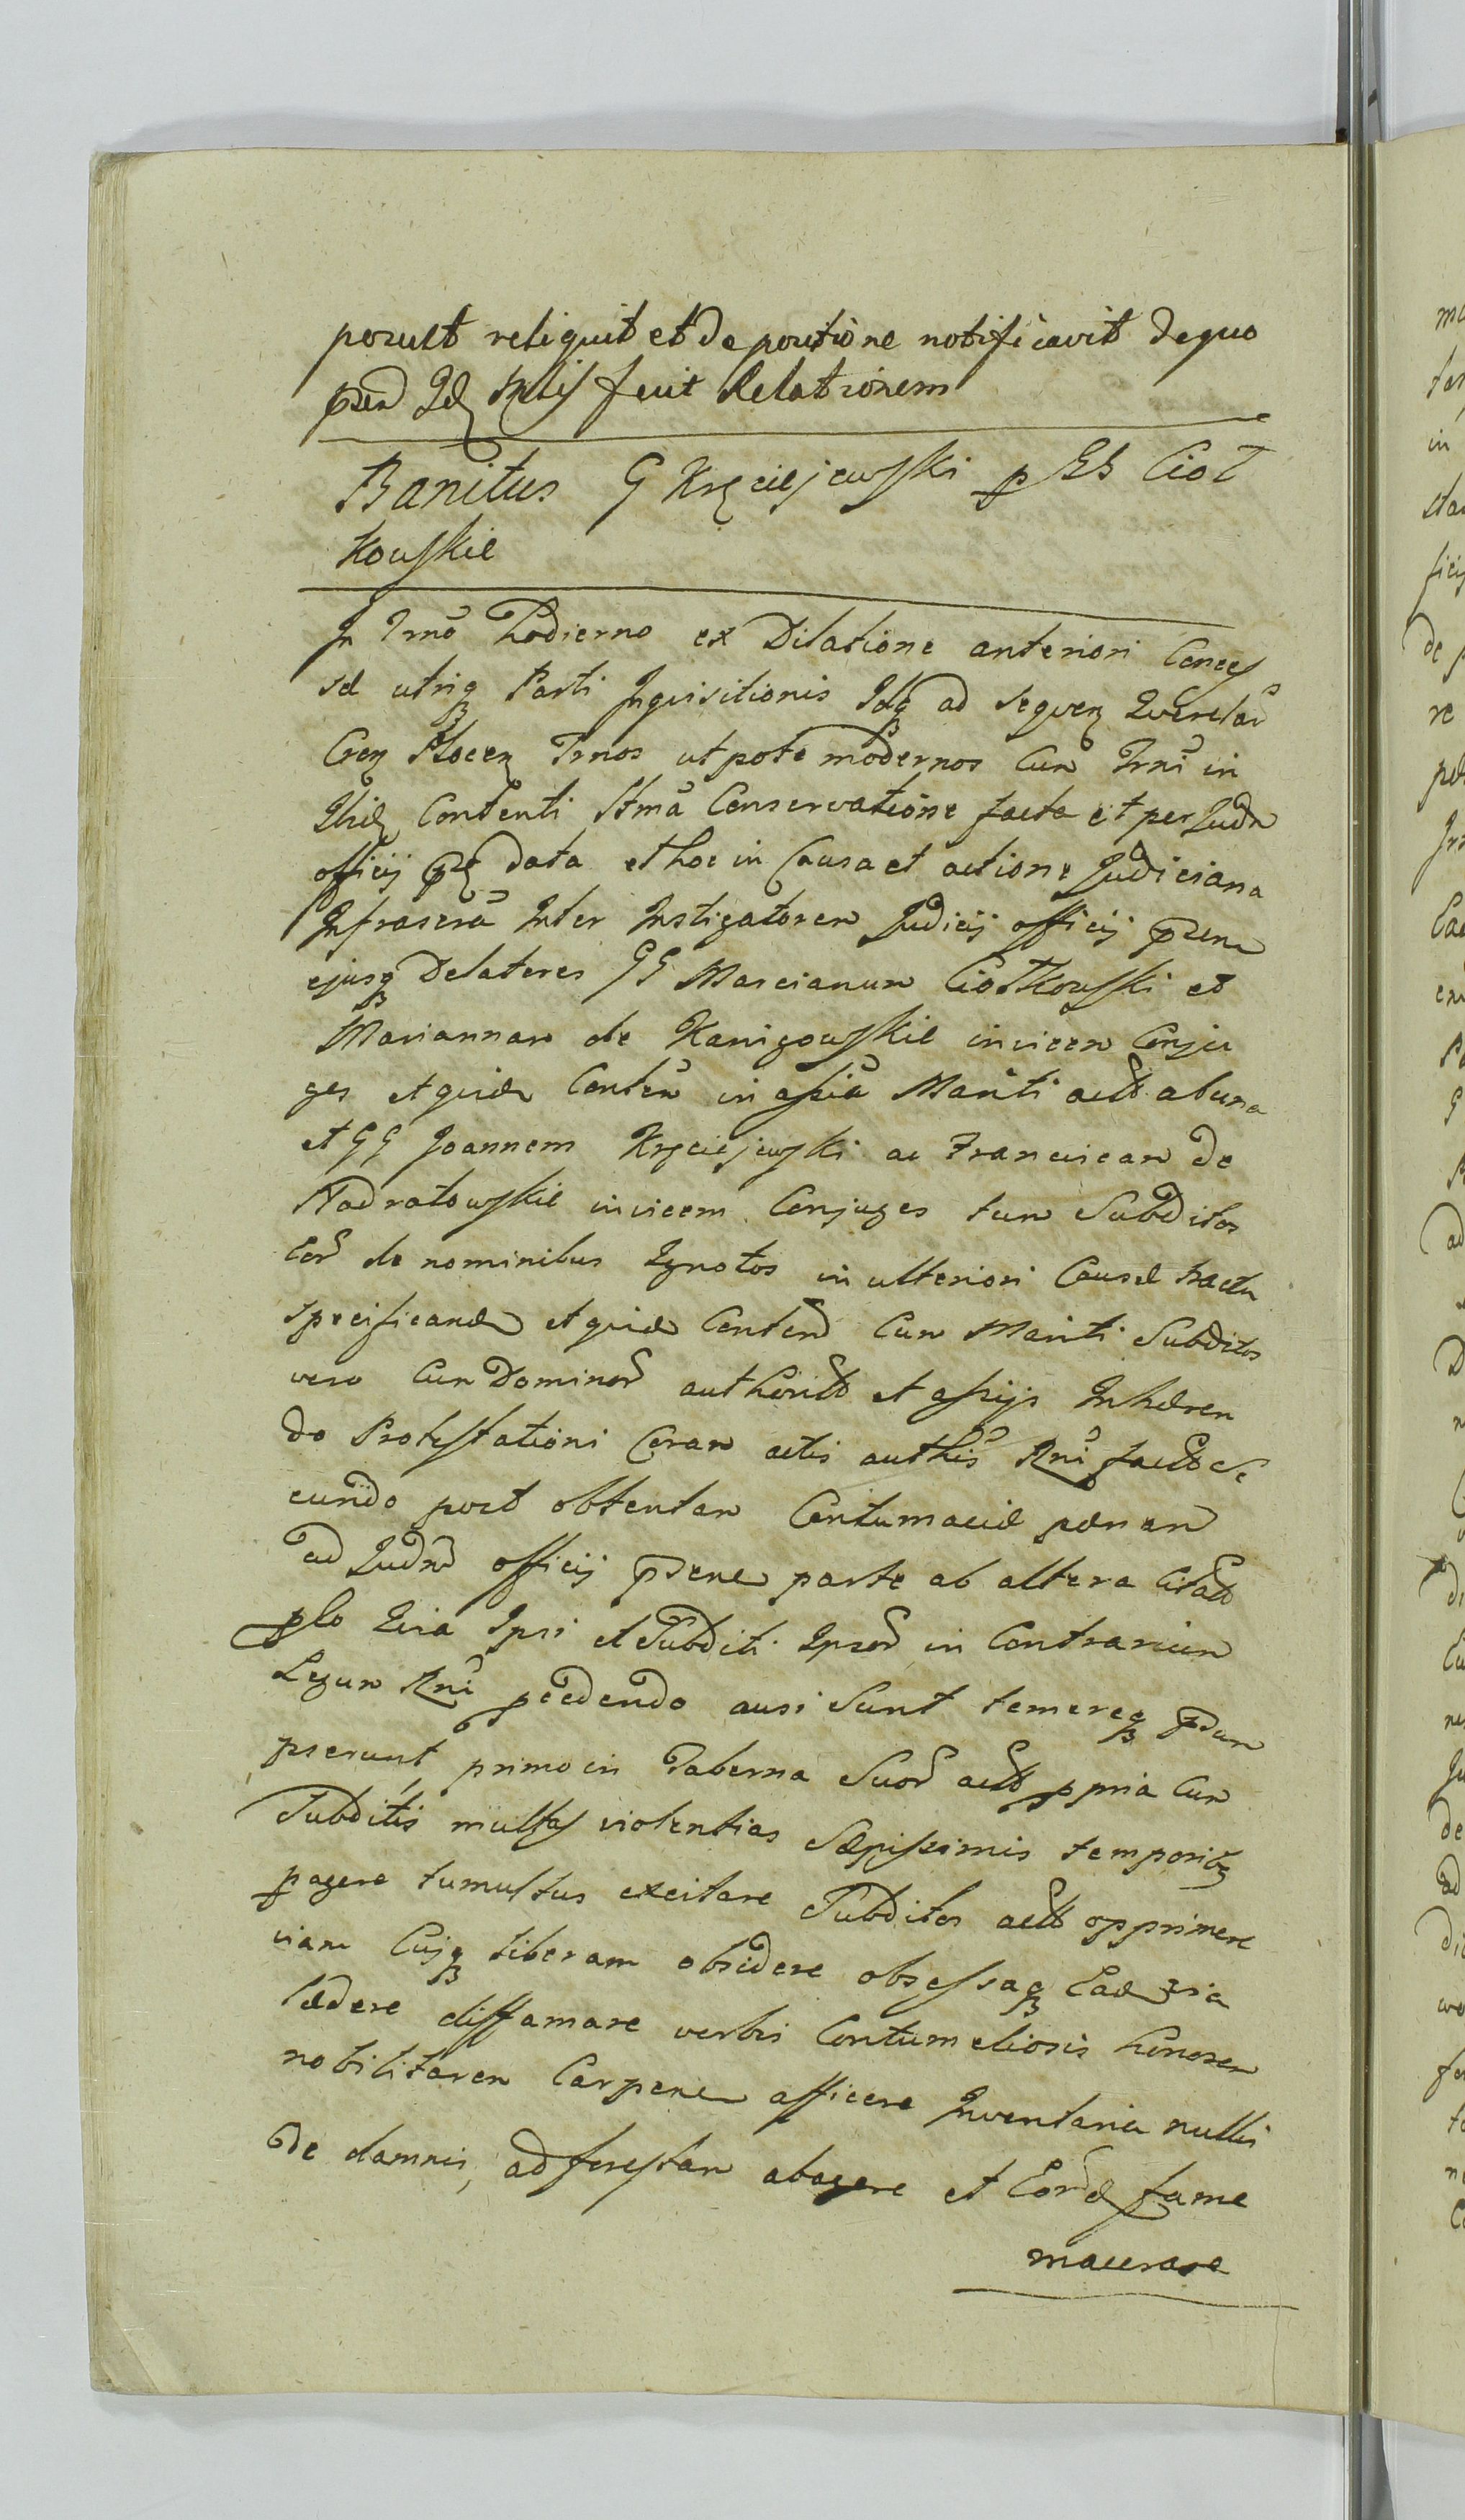 posuit reliquit et de positione notificavit de quo
pren Idq fecit Relationem
Banitus G Kręciejewski p GG Ciot
kowskie
In Trno hodierno ex Dilatione anteriori Conces
sæ utriq Parti Inquisitionis Idq ad sequen Querelar
Cren Plocen Trnos utpote modernos Cum Trni in
Ibid Contenti Conservatione facta et per Judm
officij data et hoc in Causa et actione Judiciaria
Infrascra Inter Instigatorem Judicij officij prene
ejusq Delatores GG Marcianum Ciotkowski et
Mariannam de Kanigowskie invicem Conju
ges et quidem Conten in assia Mariti actt ab una
et GG Joannem Kręciejewski ac Franciscam de
Nadratowskie invicem Conjuges tum Subditos
Eor de nominibus Ignotos in ulteriori Causæ tractu
specificand et quidem Contend Cum Mariti Subditos
vero Cum Dominor authoritt et assijs Inhæren
do Protestationi Coram actis authis Rni factt Se
cundo post obtentam Contumaciæ pænam
ad Judm officij prene parte ab altera Citatt
plo Quia Ipsi et Subditi Ipsor in Contrarium
Legum Rni pcedendo ausi Sunt temereq præsum
pserunt primo in Taberna Suor actt ppria Cum
Subditis multas violentias Sæpissimis temporibq
pagere tumultus excitare Subditos actt opprimere
viam Cujq liberam obsidere obsessaq Ead via
lædere diffamare verbis Contumeliosis honorem
nobilitarem Carpere afficere Inventaria nulli
de damnis, ad forestam abagere et Eor fame
macerare